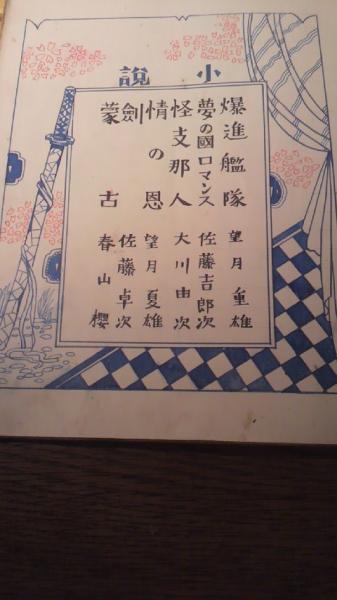 小說
爆進艦隊 望月重雄
夢の國ロマンス 佐藤吉郎次
怪支那人 大川由次
情の恩 望月夏雄
劍 佐藤卓次
蒙古 春山櫻